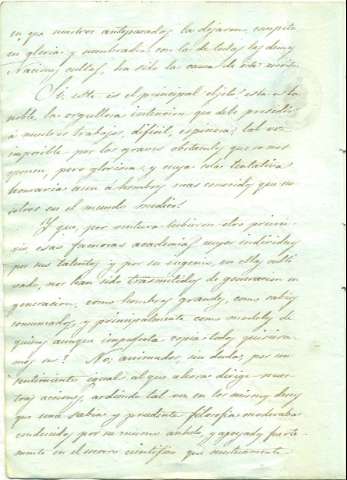 en que nuestros antepasados la dejaron, compita
en gloria y nombradia con la de todas las demas
Naciones cultas, ha sido la causa de esta reunion.
Si, este es el principal objeto, esta es la
noble, la orgullosa intencion que debe presidir
á nuestros trabajos, dificil, espinosa, tal vez
imposible por los graves obstaculos que se nos
oponen, pero gloriosa, y cuya sola tentativa
honraria aun á hombres mas conocidos que no
sotros en el mundo medico.
Y que, por ventura tubieron otro princi
pio esas famosas academias cuyos individuos
por sus talentos, y por su ingenio, en ellos
nos han sido trasmitidos de generacion en
generacion, como hombres grandes, como sabios
consumados, y principalmente como modelos de
quienes aunque imperfecta copia todos quisiera
mos ser? No; animados, sin duda, por un
sentimiento igual al que ahora dirige nues
tras acciones, ardiendo tal vez en los mismos deseos
que una sabia y prudente filosofia moderaba
conducidos por su mismo anhelo, y apoyados fuerte
mente en el socorro cientifico que mutuamente